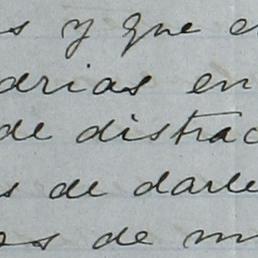 s y que e
drias en
de distrac
s de darle
os de m